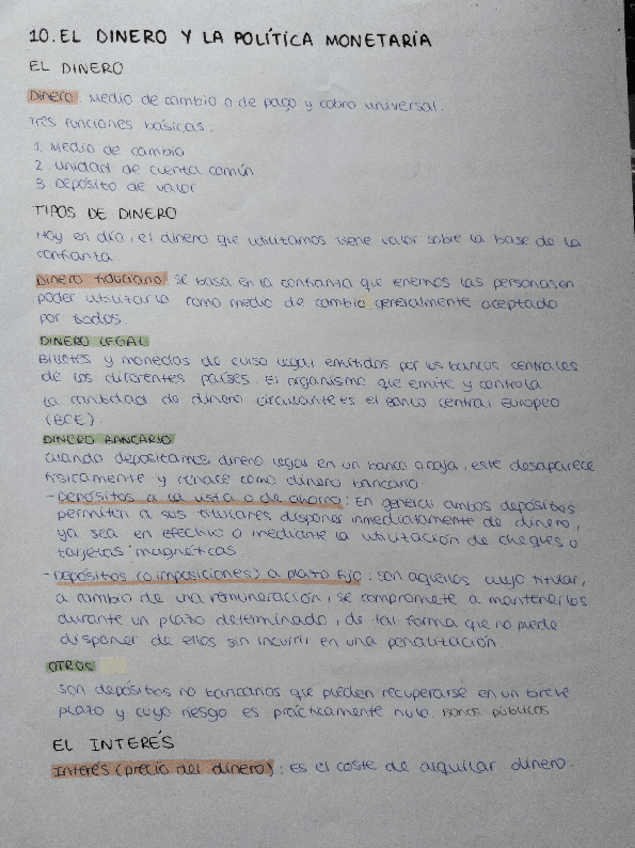 10. EL DINERO Y LA POLÍTICA MONETARIA
EL DINERO
Dinero: Medio de cambio o de pago y cobro universal.
Tres funciones básicas.
1. Medio de cambio
2. Unidad de cuenta común
3. Depósito de valor
TIPOS DE DINERO
Hoy en día, el dinero que utilizamos tiene valor sobre la base de la
confianza.
Dinero fiduciario: Se basa en la confianza que tenemos las personas en
poder utilizarlo como medio de cambio generalmente aceptado
por todos.
DINERO LEGAL
Billetes y monedas de curso legal emitidos por los bancos centrales
de los diferentes países. El organismo que emite y controla
la cantidad de dinero circulante es el Banco Central Europeo
(BCE).
DINERO BANCARIO
Cuando depositamos dinero legal en un banco o caja, este desaparece
físicamente y renace como dinero bancario
- Depósitos a la vista o de ahorro: En general ambos depósitos
permiten a sus titulares disponer inmediatamente de dinero,
ya sea en efectivo o mediante la utilización de cheques o
tarjetas magnéticas
- Depósitos (o imposiciones) a plazo fijo: son aquellos cuyo titular,
a cambio de una remuneración, se compromete a mantenerlos
durante un plazo determinado, de tal forma que no puede
disponer de ellos sin incurrir en una penalización.
OTROS
Son depósitos no bancarios que pueden recuperarse en un breve
plazo y cuyo riesgo es prácticamente nulo. Bonos públicos
EL INTERÉS
Interés (precio del dinero): Es el coste de alquilar dinero.